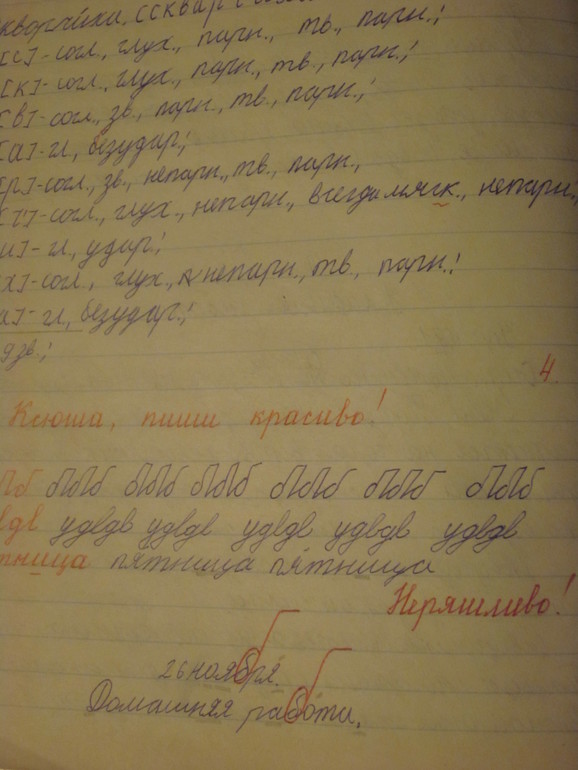 скворчиха,
[с]-согл., глух., парн., тв., парн.;
[к]-согл., глух., парн., тв., парн.;
[в]-согл., зв., парн., тв., парн.;
[а]-гл., безудар;
[р]-согл., зв., непарн., тв., парн.,
[ч]-согл., глух., непарн., всегда мягк., непарн;
и]-гл, удар;
х]-согл., глух., непарн., тв., парн.;
а]-гл, безудар.;
9 зв.;
4.
Ксюша, пиши красиво!
бПб бПб бПб бПб бПб бПб
удвдв удвдв удвдв удвдв удвдв
тница пятница пятница
Неряшливо!
26 ноября.
Домашняя работа.